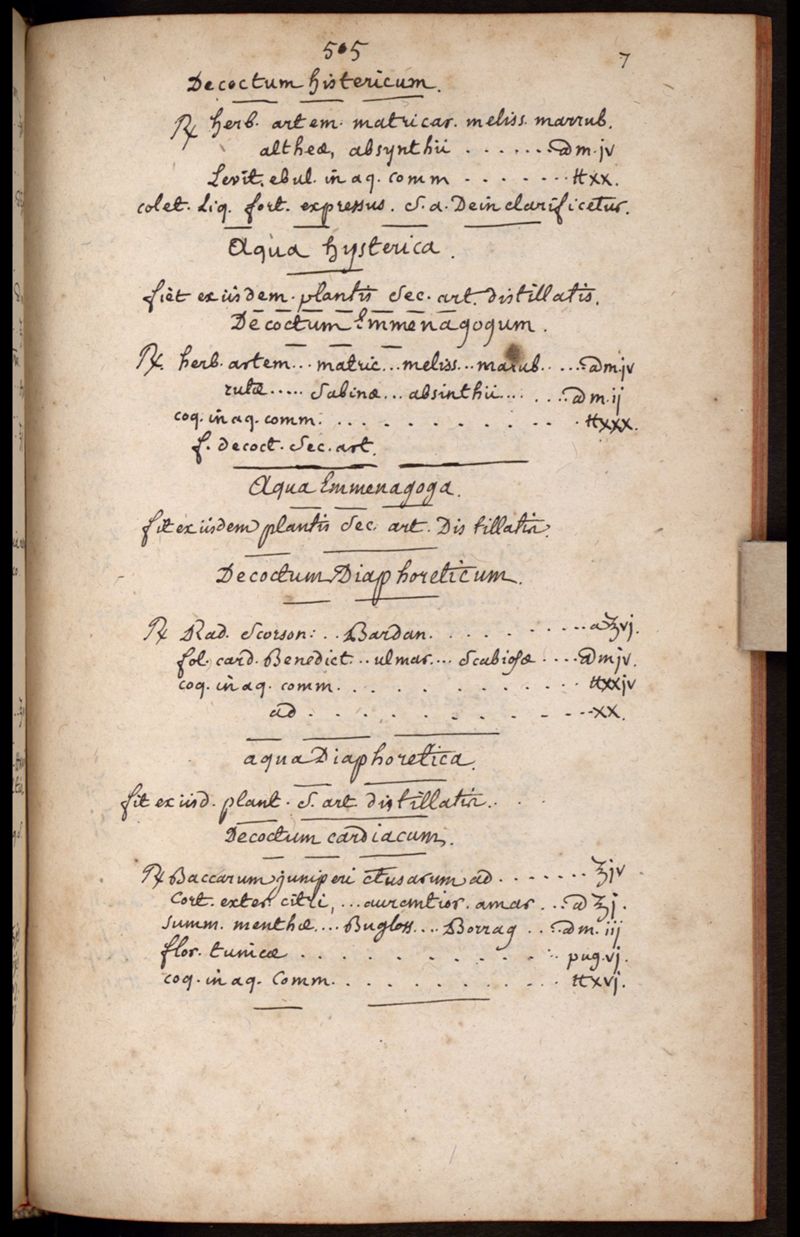 505
7
Decoctum histericum.
℞ herb. artem. matricar. meliss. marrub.
altheæ, absynthii . . . . . . . ad m. jv
Levit. ebul. in aq. comm . . . . . . . ℔xx.
colet. Liq. fort. expressus. S. a. Dein clarificetur.
Aqua hysterica.
fiet ex iisdem. plantis Sec. art. distillatis.
Decoctum Emmenagogum.
℞. herb. artem... matric... meliss... marub. . ... ad m. jv
rutæ..... Sabinæ... absinthii... . . .. ad m. ij
coq. in aq. comm. . . . . . . . . . . . ℔xxx.
f. decoct. Sec. art.
Aqua Emmenagoga.
fit ex iisdem plantis Sec. art. Distillatis.
Decoctum Diaphoreticum.
℞ Rad. Scorson: . . Bardan. . . . . . . . . . a ℥vj.
fol. card. Benedict.. ulmar... Scabiosæ .... ad m jv.
coq. in aq. comm. . . . . . . . . . . ℔xxjv
ad . . . . . . . . . . . . . xx.
aqua Diaphoretica.
fit ex iisd. plant. S. art. distillatis. . .
Decoctum cardiacum.
℞ Baccarum juniperi ctusarum ad . . . . . . . ℥jv
Cort. exter citri, ... aurentior. amar. .. ad ℥j.
Summ. menthæ... Bugloss.... Borrag . . ad m. iij
flor. tunicæ . . . . . . . . . . . . pug. vj.
coq. in aq. Comm. . . . . . . . . . . ℔xvj.